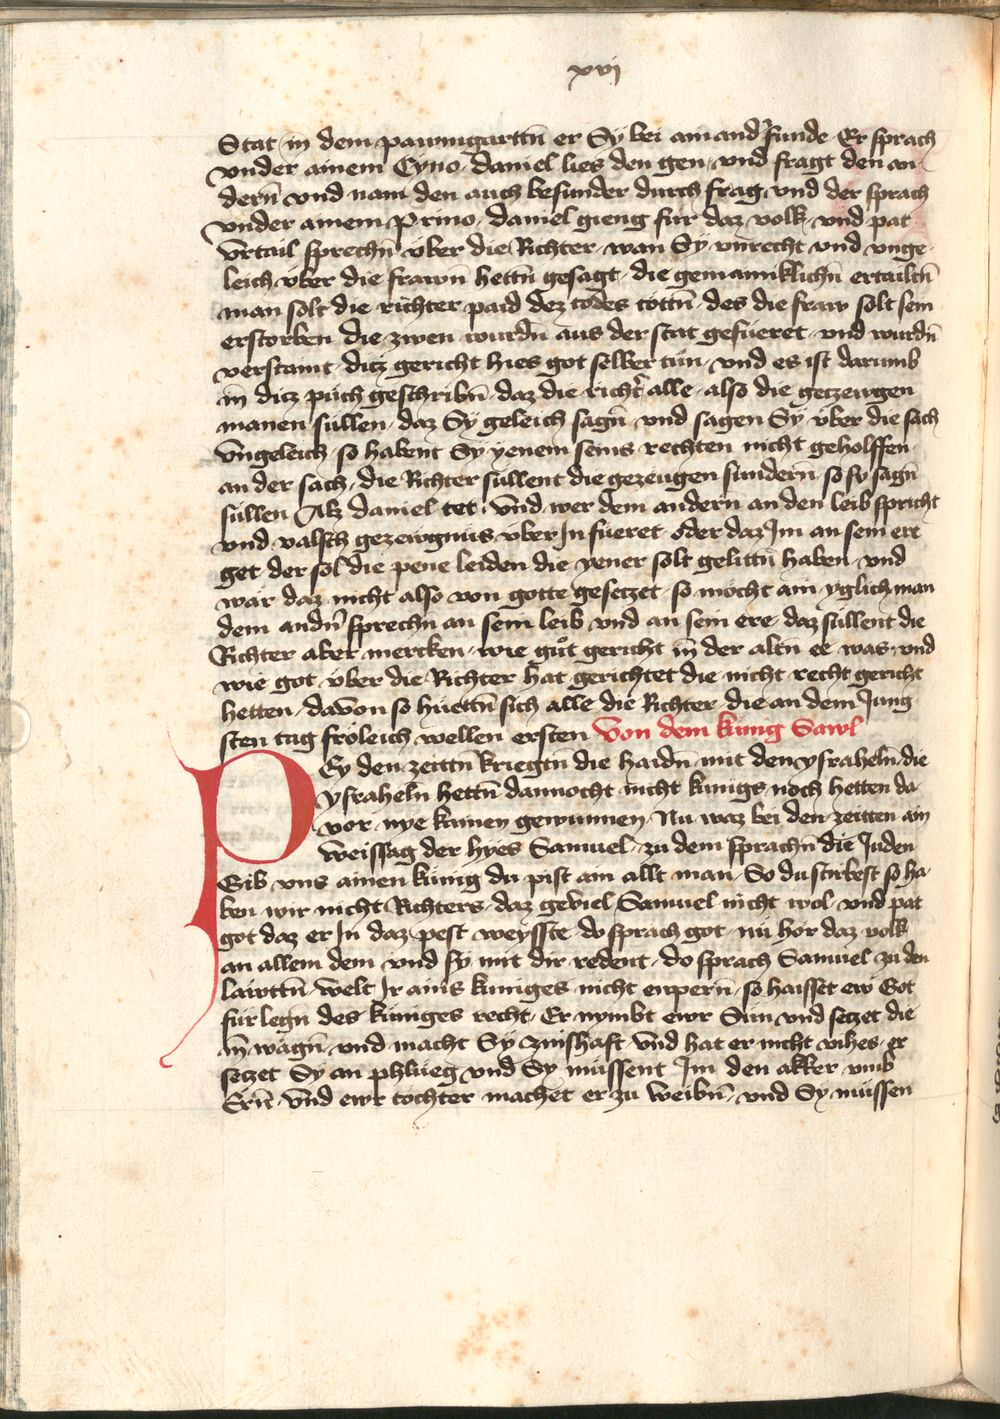 xvi
Stat in dem pawmgarttn̄ er Sy bei ainand' funde Er sprach
vnder ainem Cyno. Daniel lies den gen vnd fragt den an
dern̄ vnd nam den auch besunder durch frag vnd der sprach
vnder ainem Prino. Daniel gieng für daz volk vnd pat
vrtail sprechn̄ über die Richter wan Sy vnrecht vnd vnge
leich über die frawn hettn̄ gesagt die gemainklichn̄ ertailtn̄
man solt die richter paid dez todes töttn̄ des die fraw solt sein
erstorben die zwen wurdn̄ aus der stat gefüeret vnd wurdn̄
verstaint ditz gericht hies got selber tün vnd es ist darumb
in ditz püch geschribn̄ daz die richt' alle also die getzewgen
manen süllen daz Sy geleich sagn̄ vnd sagen Sy über die sach
vngeleich so habent Sy yenem seins rechten nicht geholffen
an der sach, die Richter süllent die gezeugen sundern so sy sagn̄
süllen Alz daniel tet. Vnd wer dem andern an den leib spricht
vnd valsch gezewgnüs über In füeret oder daz Im an sein ere
get der sol die pene leiden die yener solt gelittn̄ haben vnd
wär daz nicht also von gotte gesetzet so möcht ain yglich man
dem andn̄ sprechn̄ an sein leib vnd an sein ere daz süllent die
Richter aber mercken wie guͦt gericht in der altn̄ ee was vnd
wie got über die Richter hat gerichtet die nicht recht gericht
hetten, davon so huettn̄ sich alle die Richter die an dem Jung
sten tag fröleich wellen ersten Von dem küng Sawl
PEy den zeittn̄ kriegtn̄ die haidn̄ mit den ysraheln̄ die
ysraheln̄ hettn̄ dannocht nicht künigs noch hetten da
vor nye kainen gewunnen Nu waz bei den zeitten ain
weissag der hyes Samuel zu dem sprachn̄ die Juden
Gib vns ainen künig du pist ain allt man So du stirbest so ha
ben wir nicht Richters daz geviel Samuel nicht wol vnd pat
got daz er In daz pest weysste do sprach got nü hör daz volk
an allem dem vnd sy mit dir redent do sprach Samuel zu den
läwttn̄ welt Ir ains küniges nicht enpern̄ so haisset ew Got
für legn̄ des küniges recht Er nymbt ewr Sün vnd setzet die
in wägn̄ vnd macht Sy zinshaft vnd hat er nicht vihes er
setzet Sy an phlüeg vnd Sy müssent Im den akker vmb
Ern̄ Vnd ewr töchter machet er zu weibn̄ vnd Sy müssen